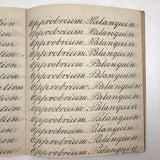 Opprobrium. Palanquin.
Opprobrium. Palanquin.
Opprobrium. Palanquin.
Opprobrium. Palanquin.
Opprobrium. Palanquin.
Opprobrium. Palanquin.
Opprobrium. Palanquin.
Opprobrium. Palanquin.
Opprobrium. Palanquin.
Opprobrium. Palanquin.
Opprobrium. Palanquin.
Opprobrium. Palanquin.